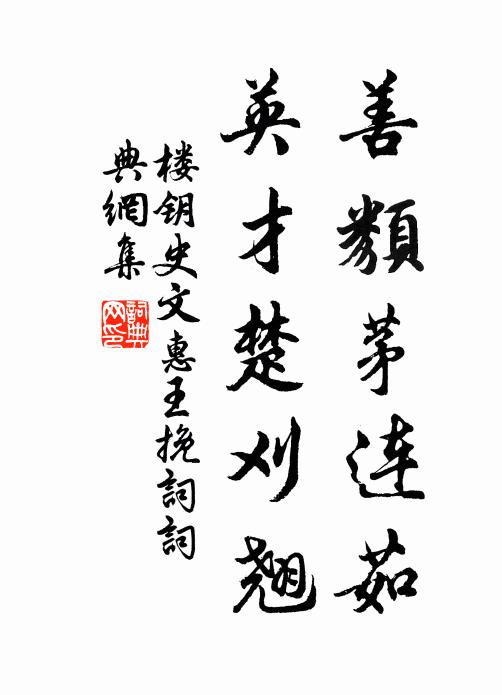 善類茅連茹
英才楚刈翹
楼钥史文惠王挽詞詞
典網集
詞典網印